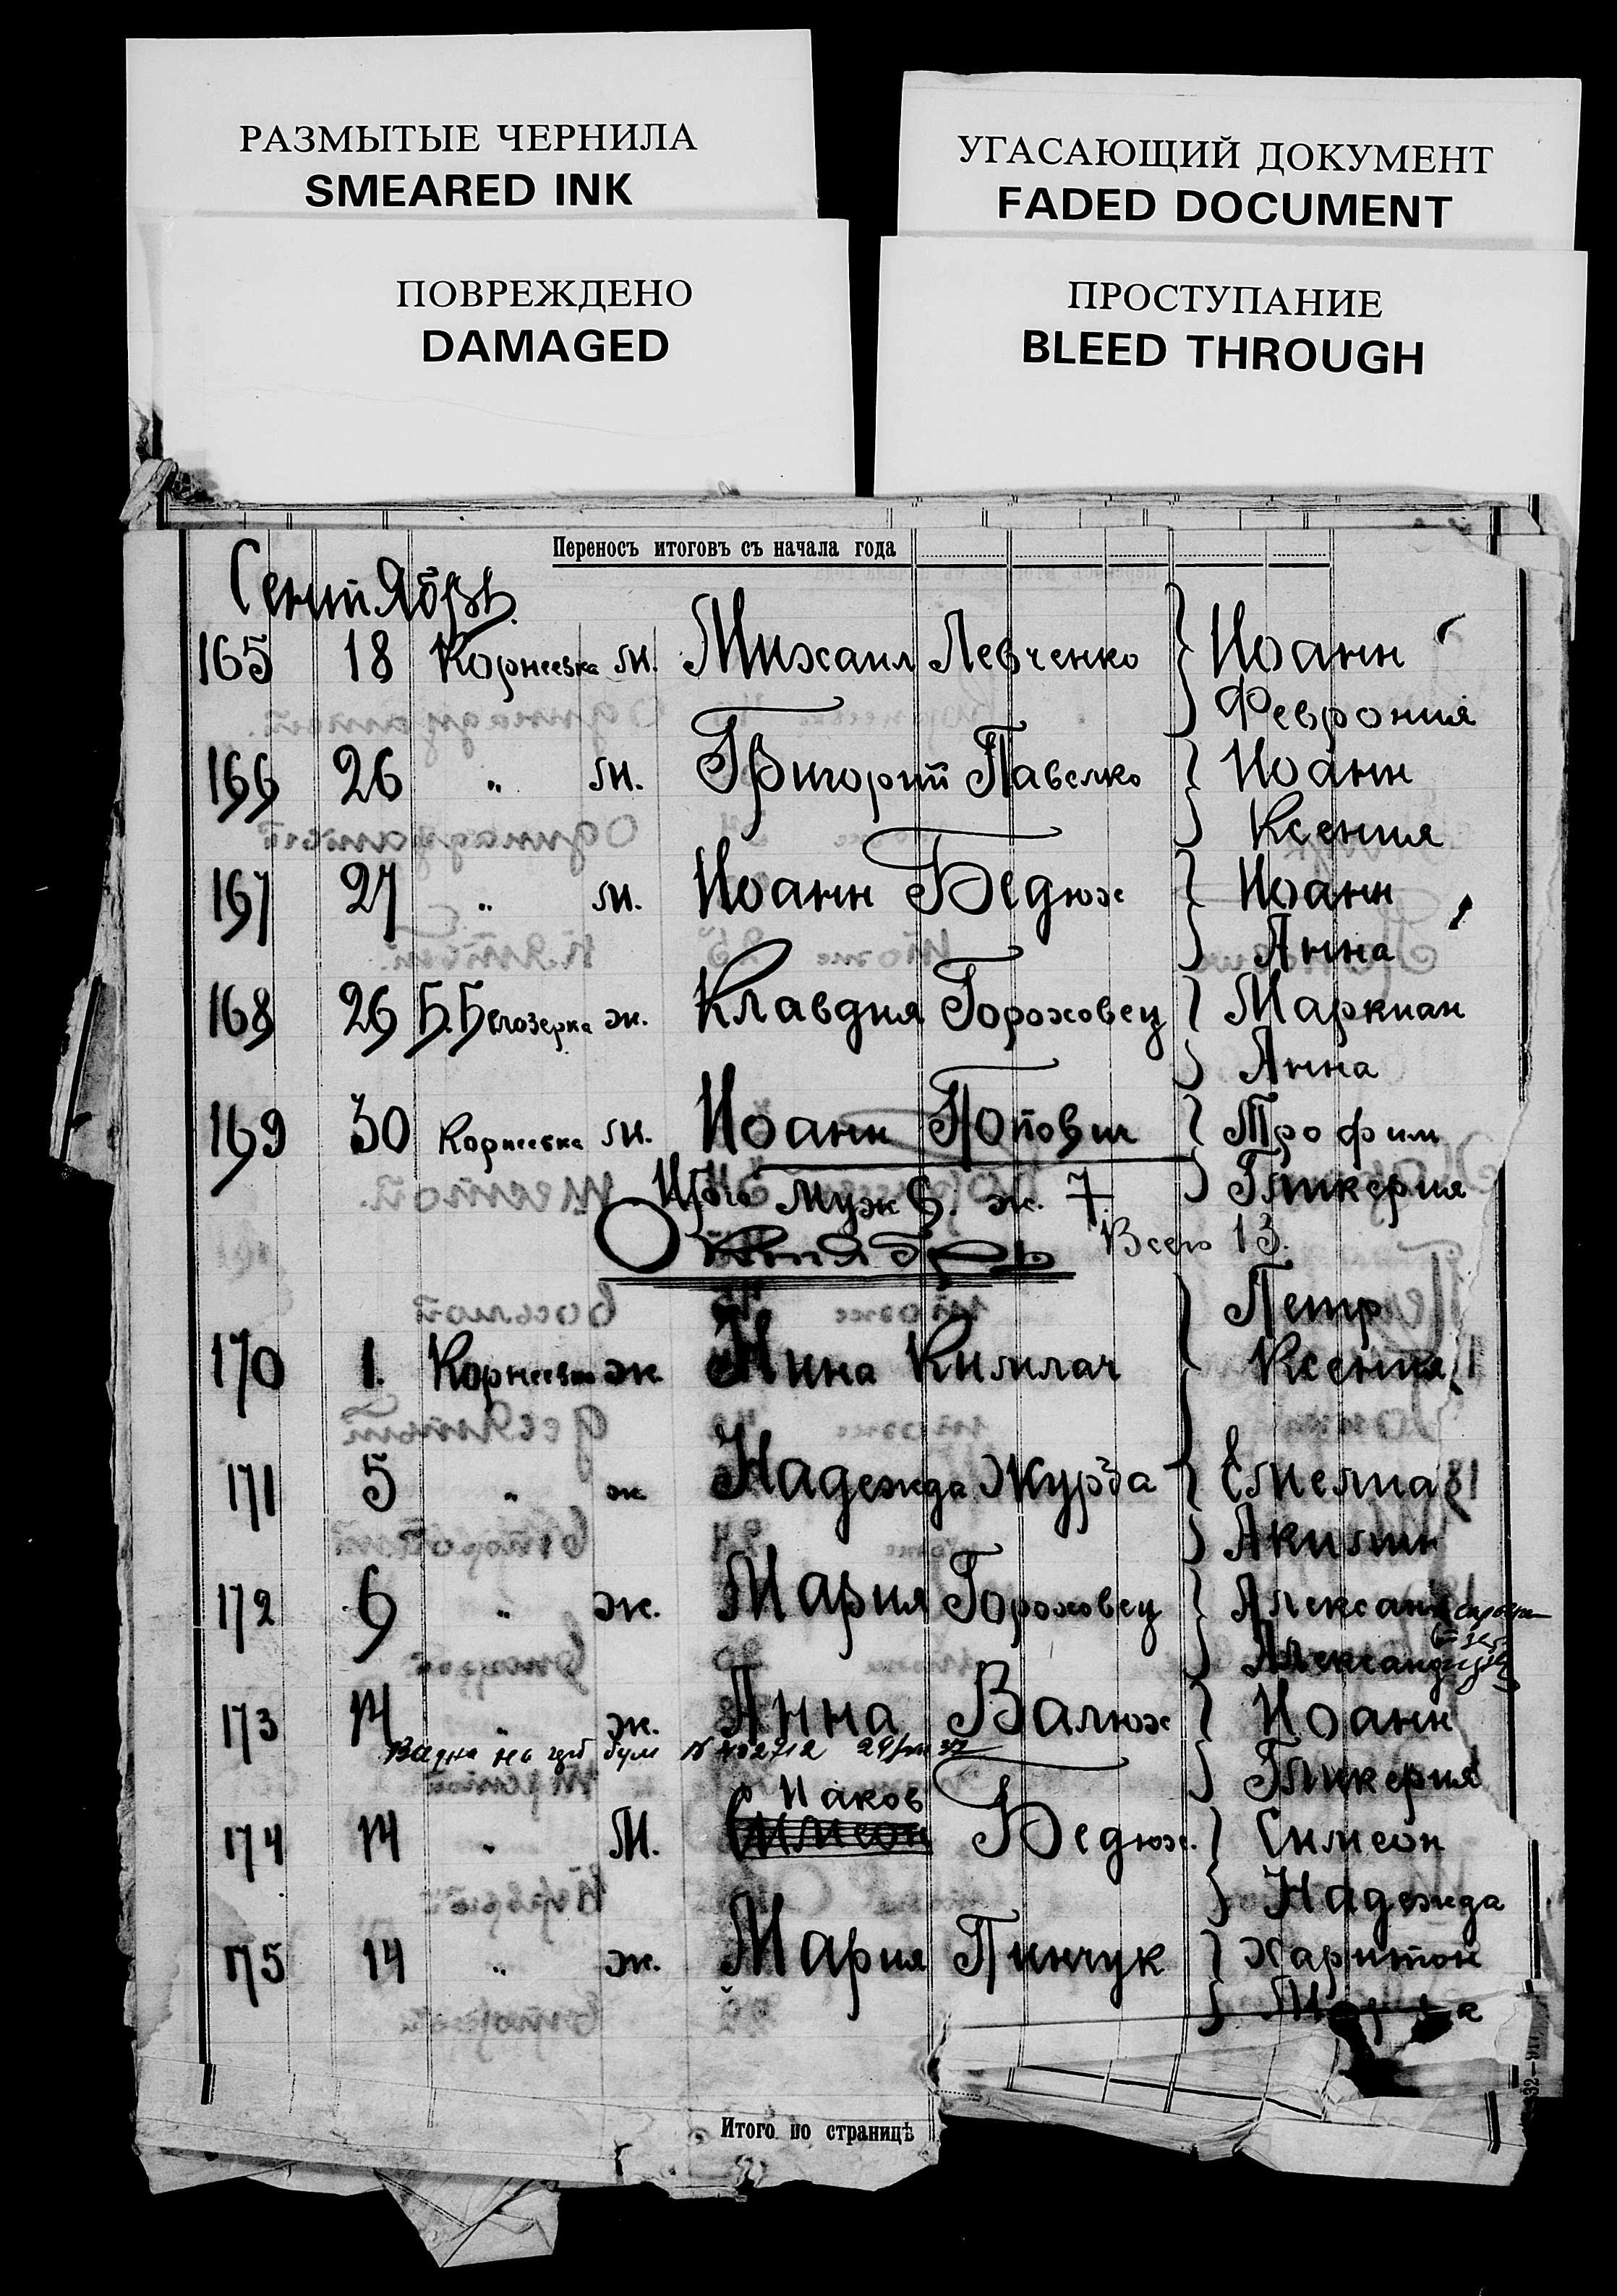 РАЗМЫТЫЕ ЧЕРНИЛА
SMEARED INK
УГАСАЮЩИЙ ДОКУМЕНТ
FADED DOCUMENT
ПОВРЕЖДЕНО
DAMAGED
ПРОСТУПАНИЕ
BLEED THROUGH
Переносъ итоговъ съ начала года
Сентябрь
165 18 Корнеевка м. Михаил Левченко Иоанн
Феврония
166 26 " м. Григорий Павелко Иоанн
Ксения
167 27 " м. Иоанн Бедюх Иоанн
Анна
168 26 Б. Белозерка ж. Клавдия Гороховец Маркиан
Анна
169 30 Корнеевка м. Иоанн Попович Трофим
Итого муж 6. ж. 7. Гликерия
Всего 13.
Октябрь
Петр
170 1. Корнеевка ж. Нина Кимлач Ксения
171 5 " ж Надежда Журба Емелиа
Акилин
172 6 " ж. Мария Гороховец Александ
Александ
173 14 " ж. Анна Валюх Иоанн
Гликерия
Иаков
174 14 " М. Симеон Бедюх. Симеон
Надежда
175 14 " ж. Мария Пинчук Харитон
Итого по страницѣ